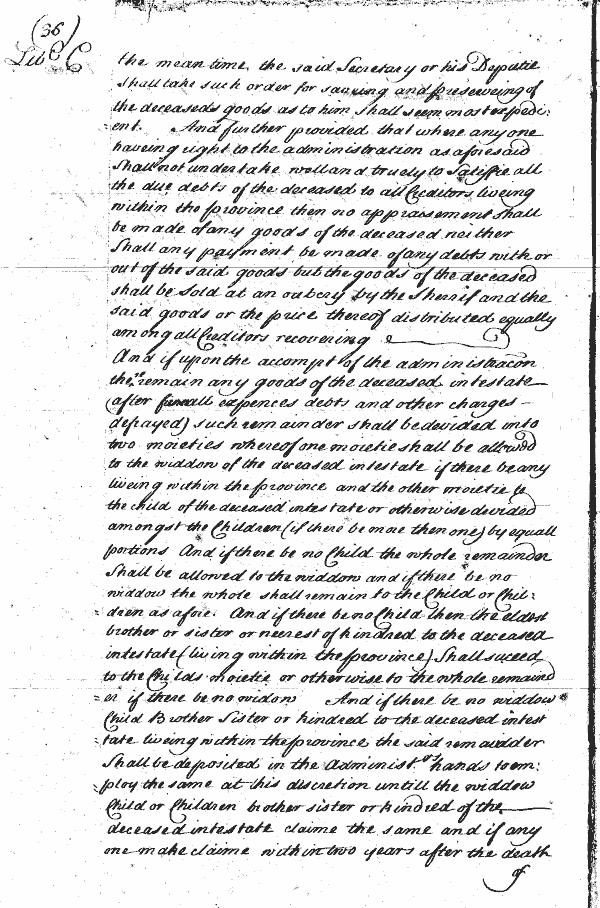 (36)
Lib C C
the mean time, the said Secretary or his Deputie
Shall take such order for saveing and preserveing of
the deceaseds goods as to him shall seem most expedi:
ent. And further provided that where any one
haveing right to the administration as aforesaid
Shall not undertake well and truely to Satisfie all
the due debts of the deceased to all Creditors liveing
within the province then no appraisement shall
be made of any goods of the deceased neither
Shall any payment be made of any debts with or
out of the said goods but the goods of the deceased
shall be Sold at an outcry by the Sherrif and the
said goods or the price thereof distributed equally
among all Creditors recovering
And if upon the accompt of the administracon
there remain any goods of the deceased intestate
(after funerall expences debts and other charges
defrayed) such remainder shall be devided into
two moieties whereof one moietie shall be allowed
to the widdow of the deceased intestate if there be any
liveing within the province and the other moietie to
the child of the deceased intestate or otherwise devided
amongst the Children (if there be more then one) by equall
portions And if there be no Child the whole remainder
Shall be allowed to the widdow and if there be no
widdow the whole shall remain to the Child or Chil:
dren as afore. And if there be no Child then the eldest
brother or sister or neerest of kindred to the deceased
intestate (living within the province) Shall suceed
to the Childs moietie or otherwise to the whole remaind
er if there be no widow And if there be no widdow
Child Brother Sister or kindred to the deceased intest
tate liveing within the province the said remaidder
Shall be deposited in the Administ.rs hands to em:
ploy the same at his discretion untill the widdow
Child or Children brother sister or kindred of the
deceased intestate claime the same and if any
one make claime within two years after the death
of